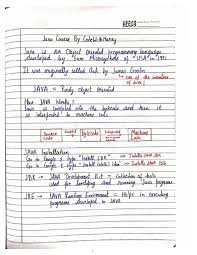 Java Course By CodeWithHarry
Java is an Object Oriented programming language
developed by Sun Microsystems of "USA" in 1991.
It was originally called Oak by James Goslin
one of the inventors
of Java!
JAVA = Purely Object Oriented
How JAVA Works?
Java is compiled into the bytecode and then it
is interpreted to machine code
Source code Compiled Bytecode Interpreted Machine Code
JAVA Installation
Go to Google & type "Install JDK" → Installs JAVA JDK
Go to Google & type "Install IntelliJ Idea" → Installs IntelliJ Idea
JDK → JAVA Development Kit = Collection of tools
used for developing and running Java programs
JRE → JAVA Runtime Environment → Helps in executing
programs developed in JAVA